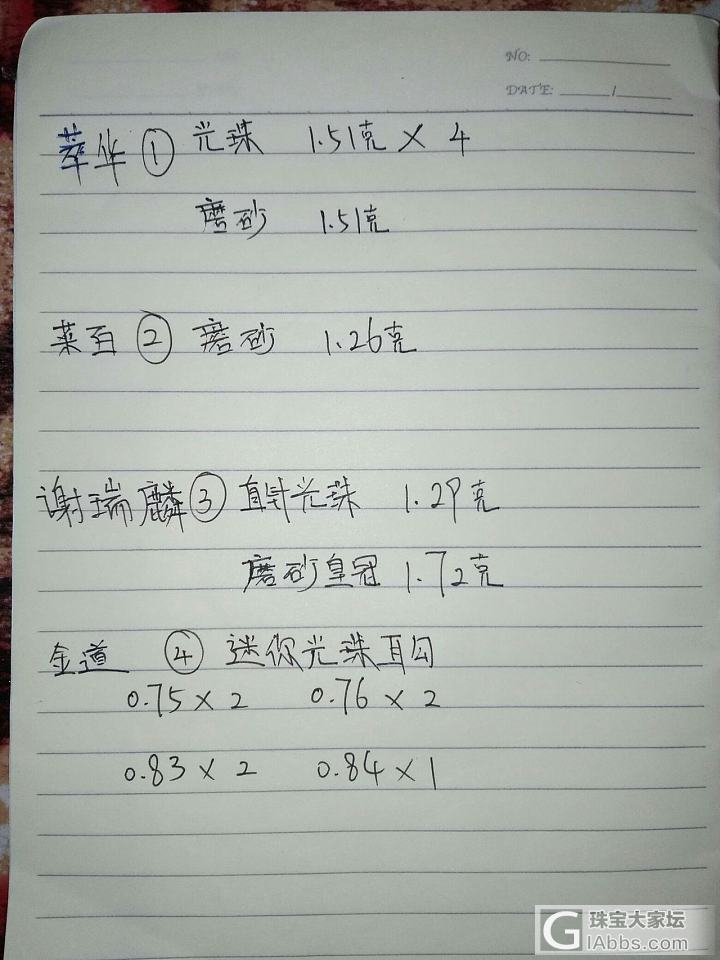 NO:
DATE: /
萃华 ① 光珠 1.51克 × 4
磨砂 1.51克
菜百 ② 磨砂 1.26克
谢瑞麟 ③ 直针光珠 1.29克
磨砂皇冠 1.72克
金道 ④ 迷你光珠耳勾
0.75 × 2 0.76 × 2
0.83 × 2 0.84 × 1
G 珠宝大家坛
iAbbs.com